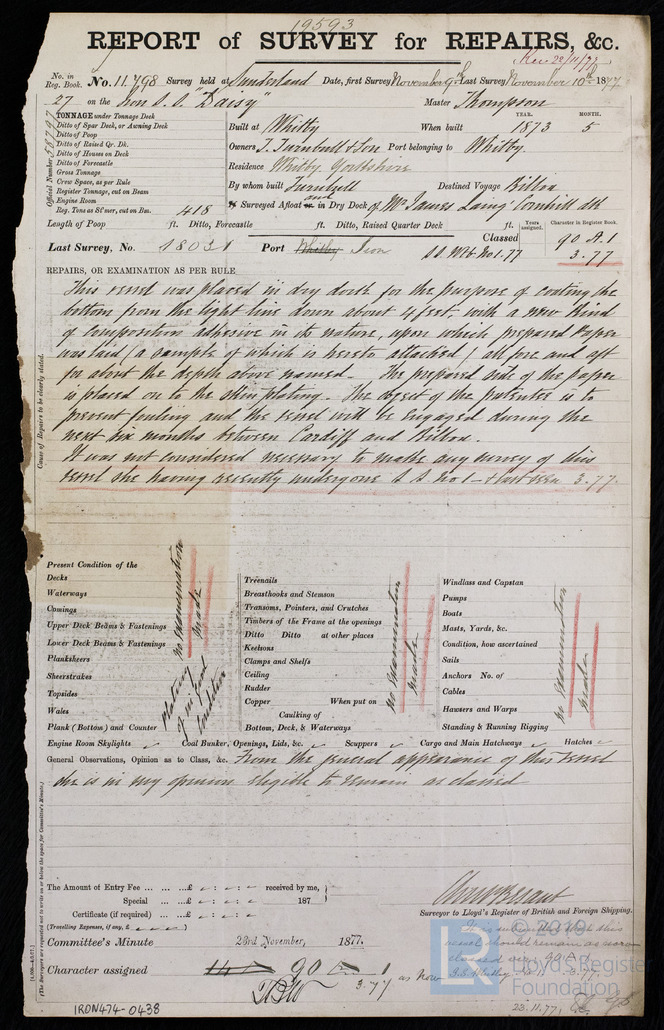 19593
REPORT of SURVEY for REPAIRS, &c.
No. in Reg. Book. No. 11,798 Survey held at Sunderland Date, first Survey November Last Survey November 10th 1877
27 on the Iron S.S. "Daisy" Master Thompson
Official Number 56797
TONNAGE under Tonnage Deck
Ditto of Spar Deck, or Awning Deck
Ditto of Poop
Ditto of Raised Qr. Dk.
Ditto of Houses on Deck
Ditto of Forecastle
Gross Tonnage
Crew Space, as per Rule
Register Tonnage, cut on Beam
Engine Room
Reg. Tons as St'mer, cut on Bm. 418
YEAR. MONTH.
Built at Whitby When built 1873 5
Owners T. Turnbull & Son Port belonging to Whitby.
Residence Whitby Yorkshire
By whom built Turnbull Destined Voyage Bilboa
Surveyed Afloat and in Dry Dock of Mr James Laing
Length of Poop ft. Ditto, Forecastle ft. Ditto, Raised Quarter Deck ft. Years assigned. Character in Register Book.
Last Survey, No. 18031 Port Whitby Iron Classed 90 A.1
S.S. Wtb No 1.77 3.77
REPAIRS, OR EXAMINATION AS PER RULE
Cause of Repairs to be clearly stated.
This vessel was placed in dry dock for the purpose of coating the
bottom from the light line down about 4 feet with a new kind
of composition adhesive in its nature, upon which prepared Paper
was laid (a sample of which is hereto attached) all fore and aft
for about the depth above named. The prepared side of the paper
is placed on to the skin plating. The object of the patentee is to
prevent fouling and the vessel will be engaged during the
next six months between Cardiff and Bilboa.
It was not considered necessary to make any survey of this
vessel she having recently undergone S.S. No 1 3.77.
Present Condition of the
Decks
Waterways
Comings
Upper Deck Beams & Fastenings
Lower Deck Beams & Fastenings
Planksheers
Sheerstrakes
Topsides
Wales
Plank (Bottom) and Counter
No examination made.
Plating in good condition
Treenails
Breasthooks and Stemson
Transoms, Pointers, and Crutches
Timbers of the Frame at the openings
Ditto Ditto at other places
Keelsons
Clamps and Shelfs
Ceiling
Rudder
Copper When put on
Caulking of
Bottom, Deck, & Waterways
No examination made
Windlass and Capstan
Pumps
Boats
Masts, Yards, &c.
Condition, how ascertained
Sails
Anchors No. of
Cables
Hawsers and Warps
Standing & Running Rigging
No examination made
Engine Room Skylights ✓ Coal Bunker, Openings, Lids, &c. ✓ Scuppers ✓ Cargo and Main Hatchways ✓ Hatches ✓
General Observations, Opinion as to Class, &c. From the general appearance of this vessel
she is in my opinion eligible to remain as classed
The Amount of Entry Fee ... ... ...£ received by me,
Special ... ...£ 187
Certificate (if required) ...£
(Travelling Expenses, if any, £ )
Surveyor to Lloyd's Register of British and Foreign Shipping.
Committee's Minute 23rd November, 1877.
Character assigned 90 A 1
3.77 as now
23.11.77
© 2019
LR
Lloyd's Register
Foundation
IRON474-0438